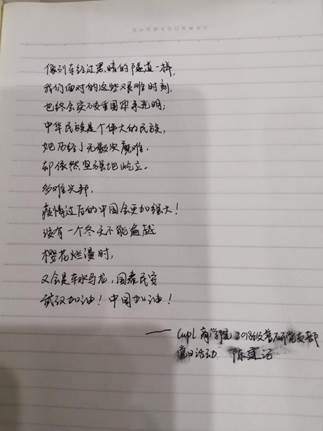 像列车经过黑暗的隧道一样，
我们面对的这些艰难时刻，
也终会突破重围带来光明；
中华民族是个伟大的民族，
她历经了无数次磨难，
却依然坚强地屹立。
多难兴邦，
疫情过后的中国会更加强大！
没有一个冬天不能逾越
樱花烂漫时，
又会是车水马龙，国泰民安
武汉加油！中国加油！
—— CUPL 商学院2018级
党日活动